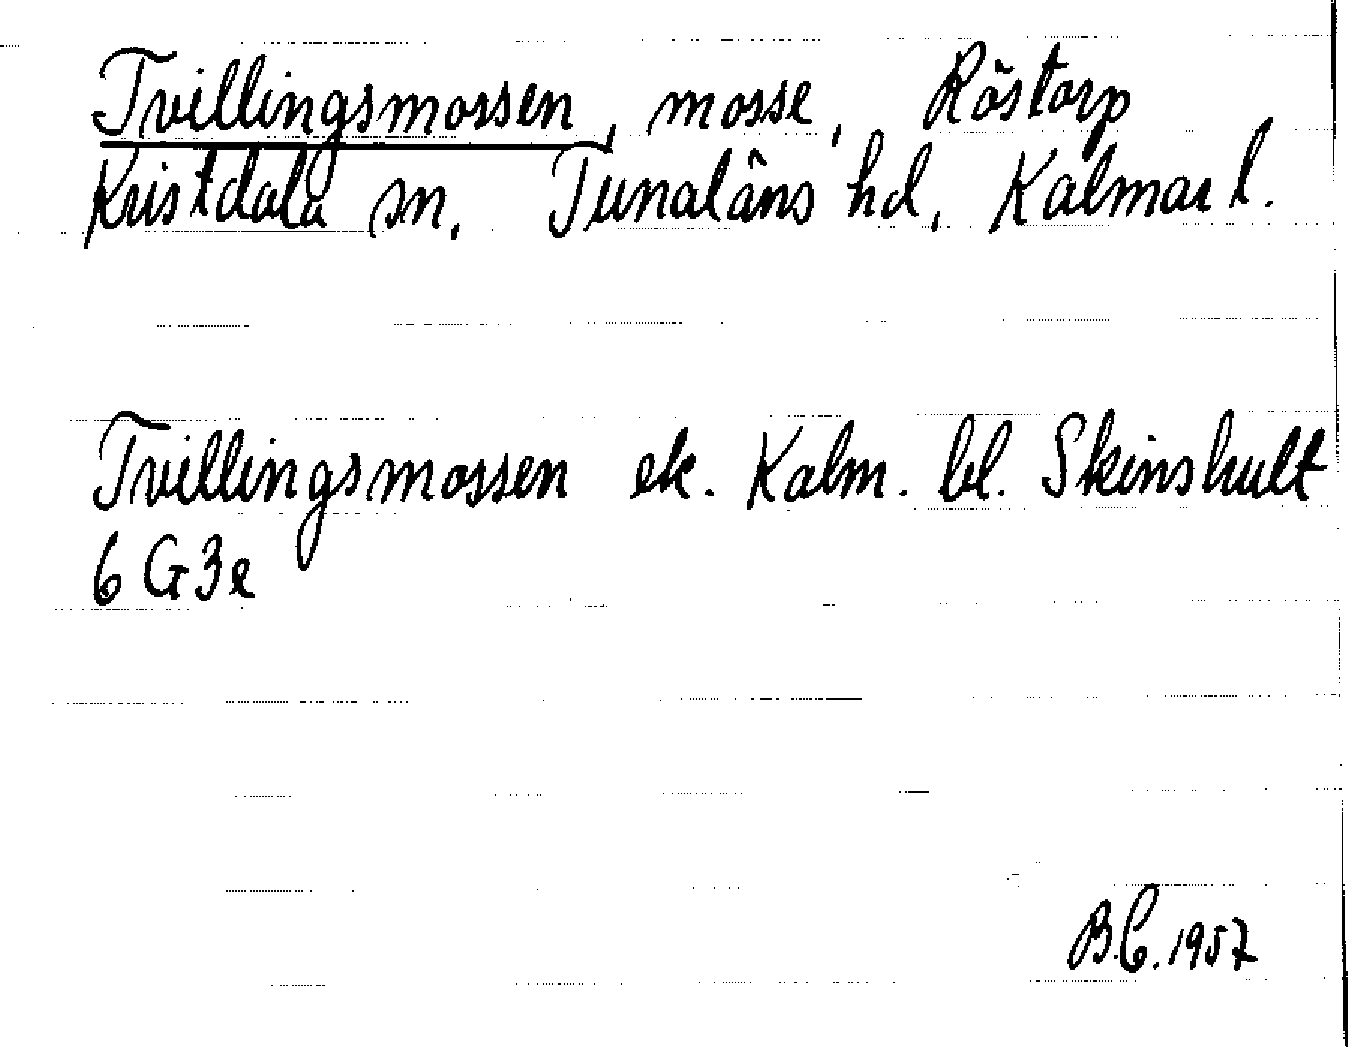 Tvillingsmossen, mosse, Röstorp
Kristdala sn, Tunaläns hd, Kalmar l.
Tvillingsmossen ek. Kalm. bl. Skinshult
6 G3e
B.C. 1957